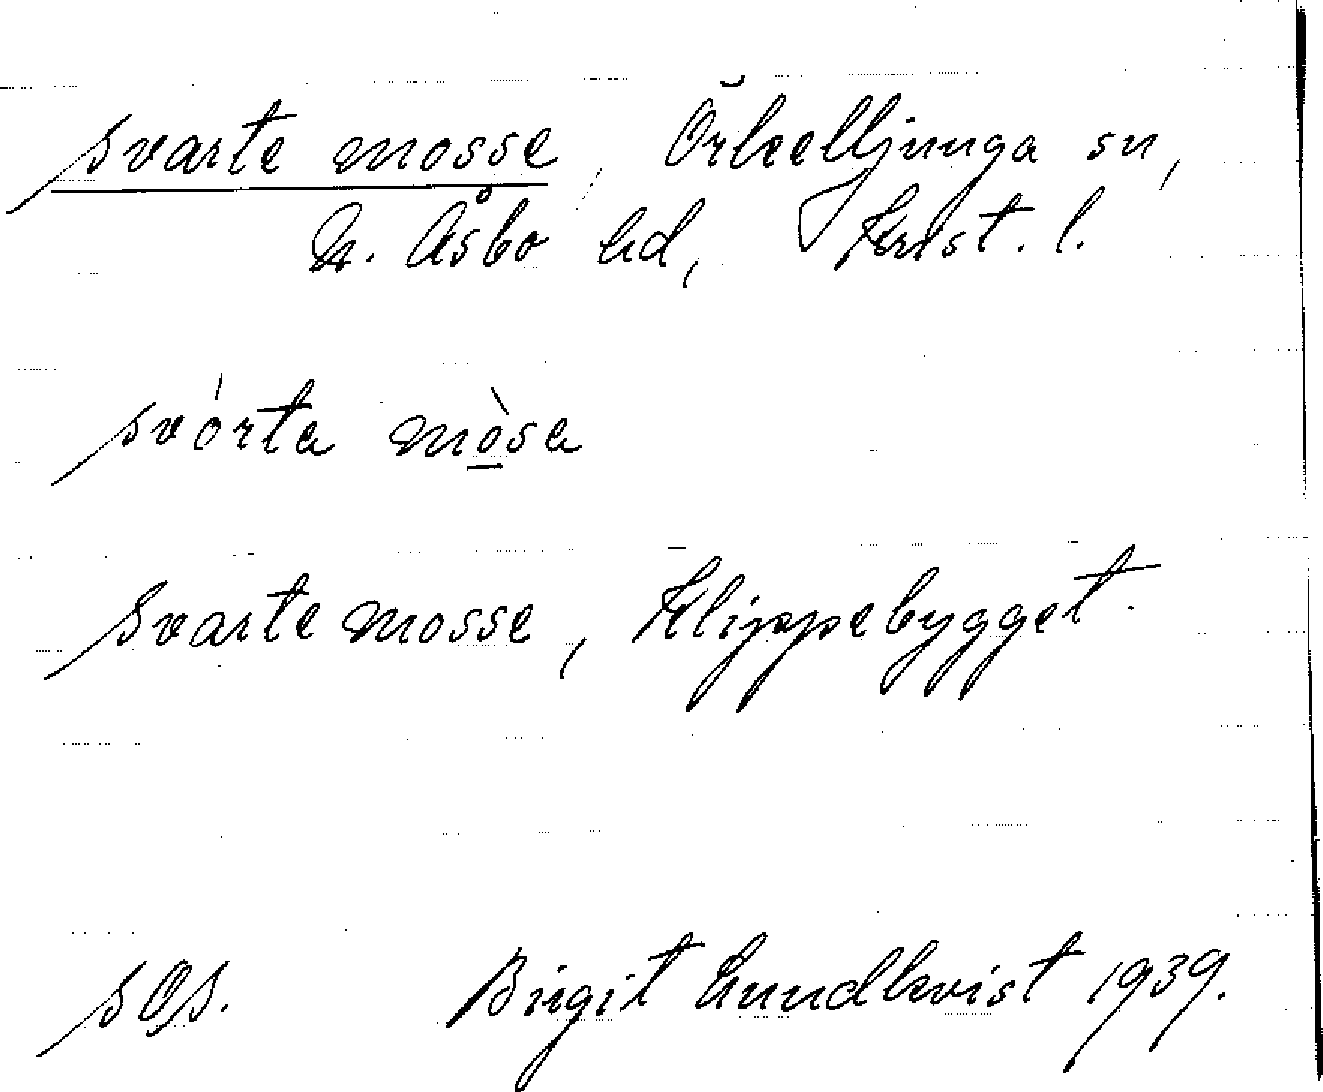 svarte mosse, Örkelljunga sn,
N. Åsbo hd, Krist. l.
svórta mòsa
Svarte mosse, Klippebygget.
sOs. Birgit Lundkvist 1939.